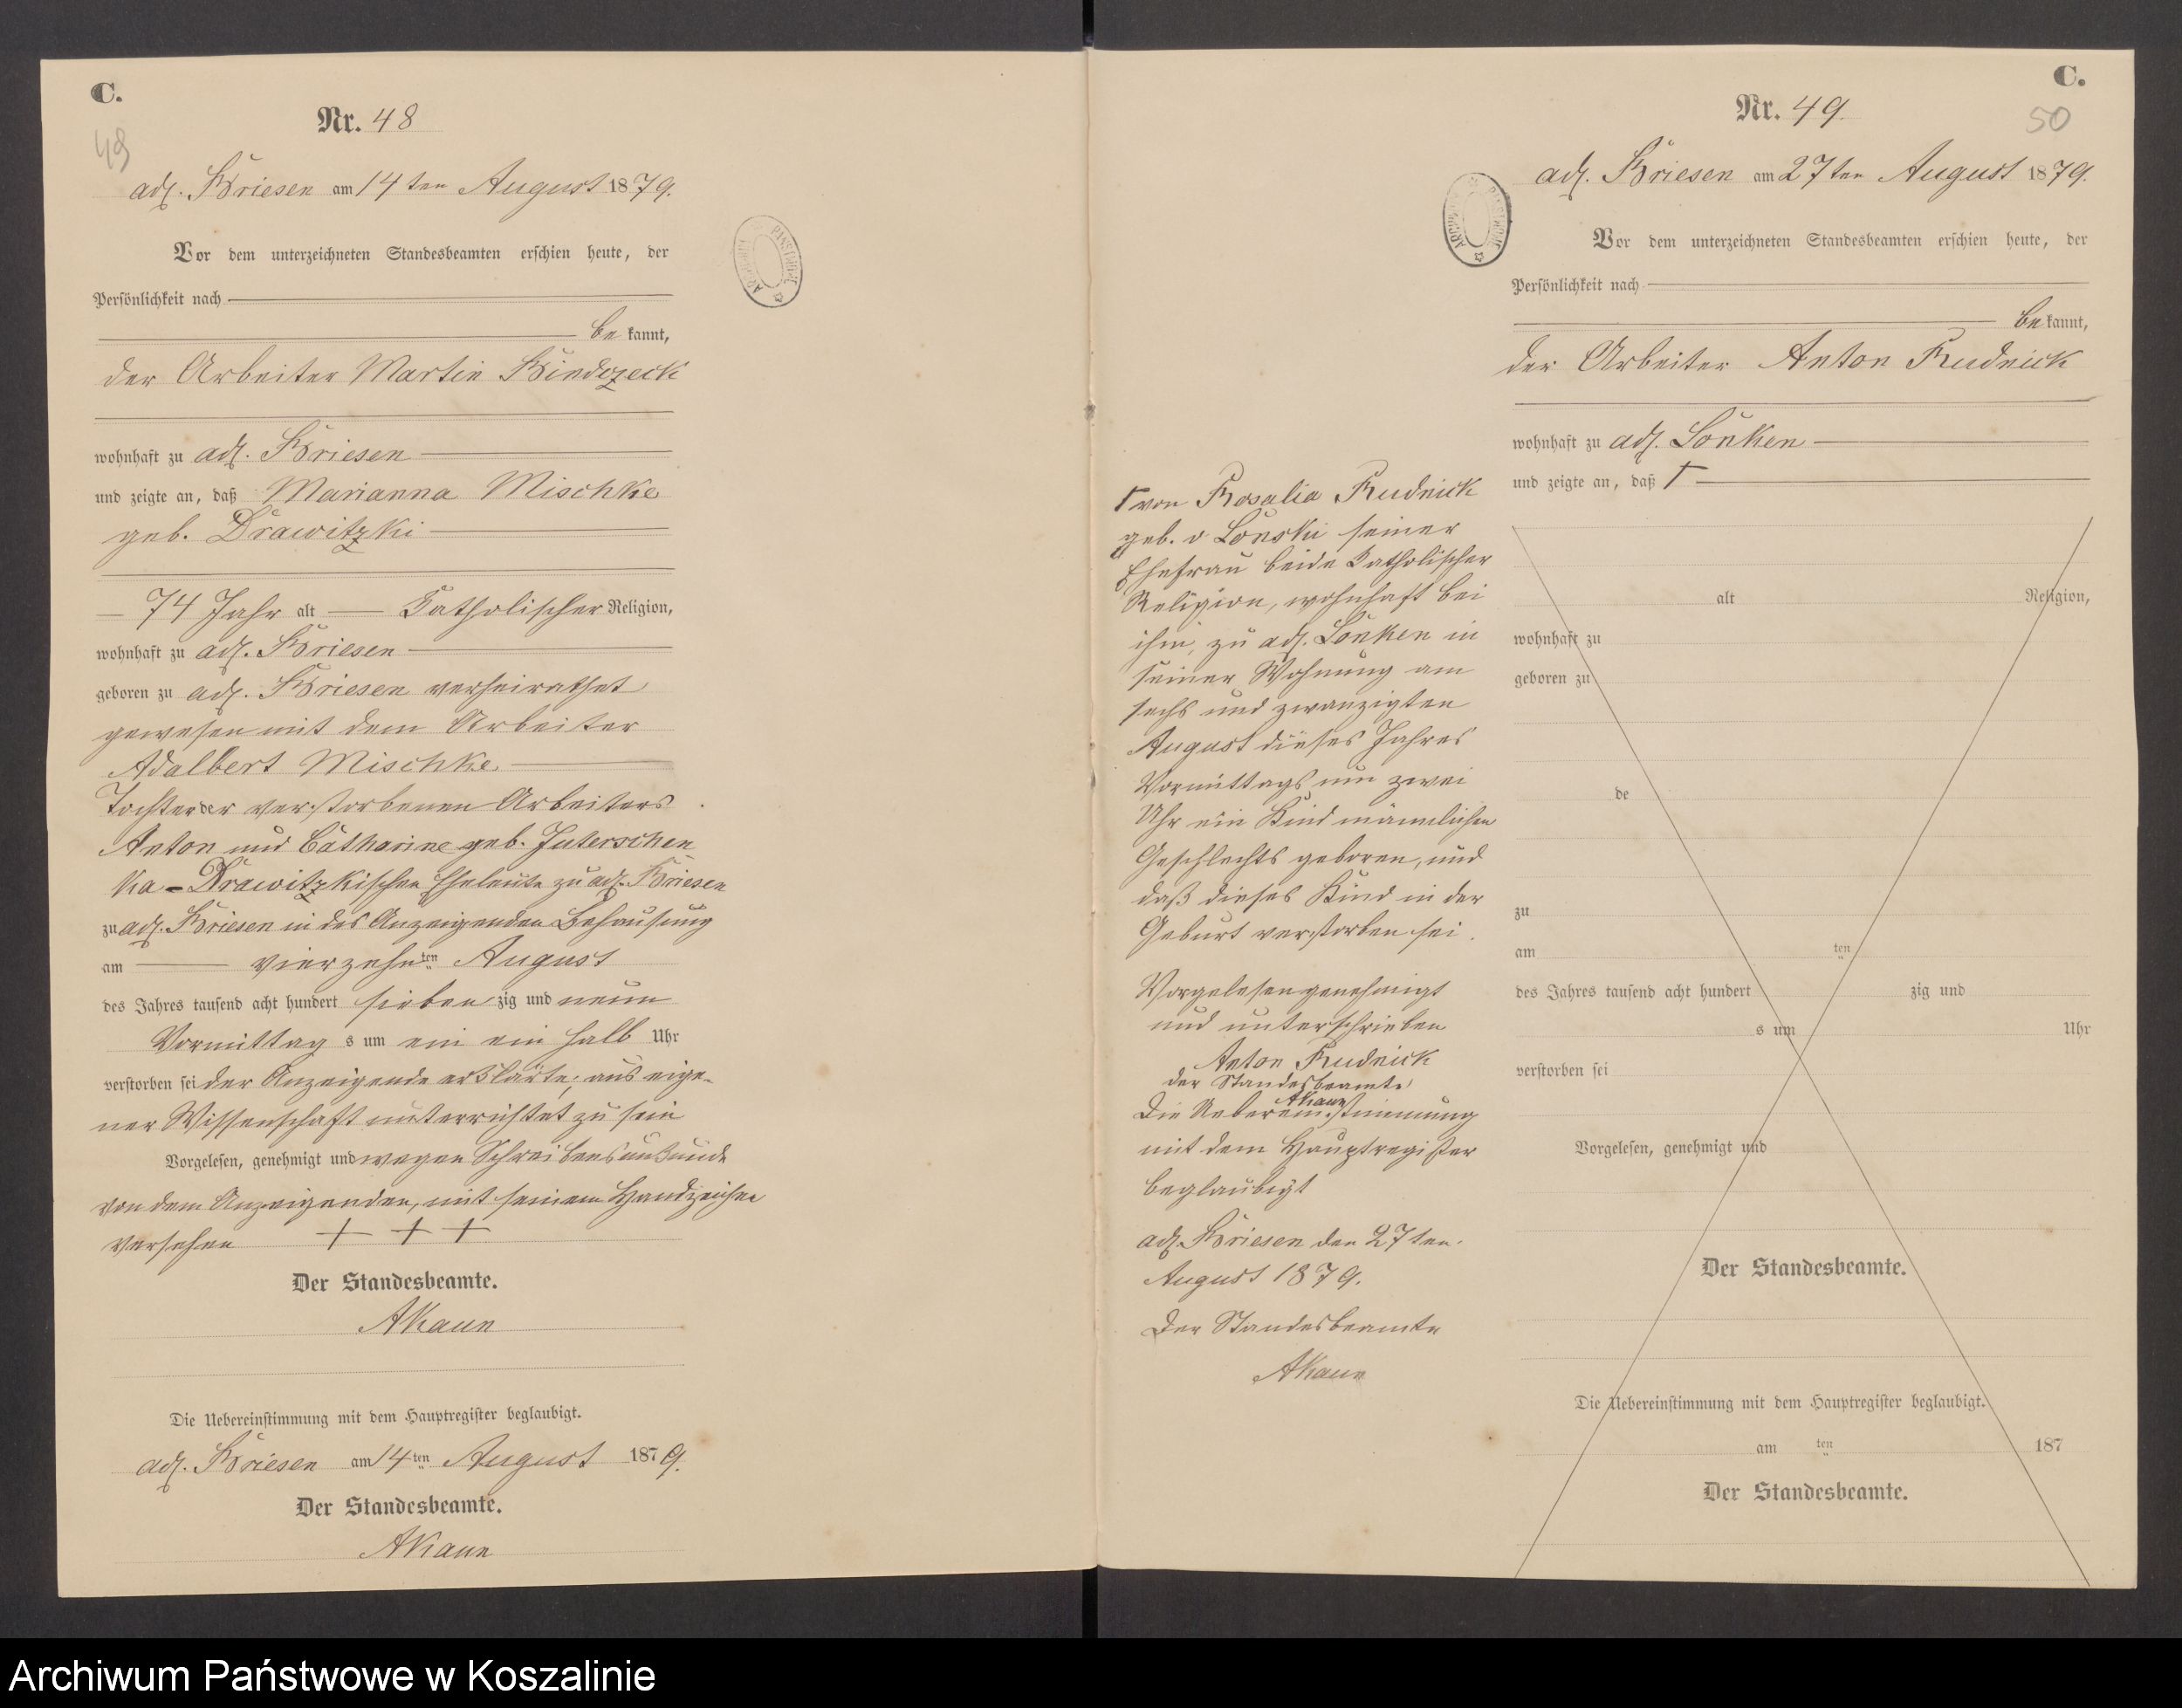 C.
Nr. 48
49
adl. Briesen am 14ten August 1879.
Vor dem unterzeichneten Standesbeamten erschien heute, der
Persönlichkeit nach
be kannt,
der Arbeiter Martin
wohnhaft zu adl. Briesen
und zeigte an, daß Marianna Mischke
geb. Drawitzki
74 Jahr alt Katholischer Religion,
wohnhaft zu adl. Briesen
geboren zu adl. Briesen verheirathet
gewesen mit dem Arbeiter
Adalbert Mischke
Tochter der verstorbenen Arbeiters
Anton und Catharine geb. Juterschen
ka - Drawitzkischen Eheleute zu adl. Briesen
zu adl. Briesen in des Anzeigenden Behausung
am vierzehnten August
des Jahres tausend acht hundert sieben zig und neun
Vormittag s um ein ein halb Uhr
verstorben sei der Anzeigende erklärte, aus eige-
ner Wissenschaft unterrichtet zu sein
Vorgelesen, genehmigt und wegen Schreibensunkunde
von dem Anzeigenden, mit seinem Handzeichen
versehen + + +
Der Standesbeamte.
AKaun
Die Uebereinstimmung mit dem Hauptregister beglaubigt.
adl. Briesen am 14ten August 1879.
Der Standesbeamte.
AKaun
C.
Nr. 49.
50
adl. Briesen am 27ten August 1879.
Vor dem unterzeichneten Standesbeamten erschien heute, der
Persönlichkeit nach
be kannt,
der Arbeiter Anton Rudnick
wohnhaft zu adl. Lonken
und zeigte an, daß Γ
Γ von Rosalia Rudnick
geb. v Lonski seiner
Ehefrau beide Katholischer
Religion, wohnhaft bei
ihm, zu adl. Lonken in
seiner Wohnung am
sechs und zwanzigten
August dieses Jahres
Vormittags um zwei
Uhr ein Kind männlichen
Geschlechts geboren, und
daß dieses Kind in der
Geburt verstorben sei.
Vorgelesen genehmigt
und unterschrieben
Anton Rudnick
der Standesbeamte
AKaun
Die Uebereinstimmung
mit dem Hauptregister
beglaubigt
adl. Briesen den 27ten
August 1879.
Der Standesbeamte
AKaun
alt Religion,
wohnhaft zu
geboren zu
de
zu
am ten
des Jahres tausend acht hundert zig und
s um Uhr
verstorben sei
Vorgelesen, genehmigt und
Der Standesbeamte.
Die Uebereinstimmung mit dem Hauptregister beglaubigt.
am ten 187
Der Standesbeamte.
Archiwum Państwowe w Koszalinie